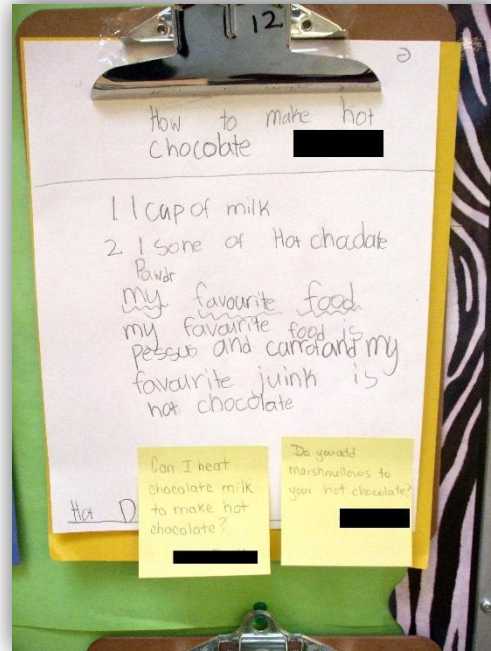 12
How to make hot
chocolate
1. 1 cup of milk
2. 1 sone of Hot chocdate
Pawdr
my favourite food
my favourite food is
and carrot and my
favourite juink is
hot chocolate
Hot D
Can I heat
chocolate milk
to make hot
chocolate?
Do you add
marshmellows to
your hot chocolate?